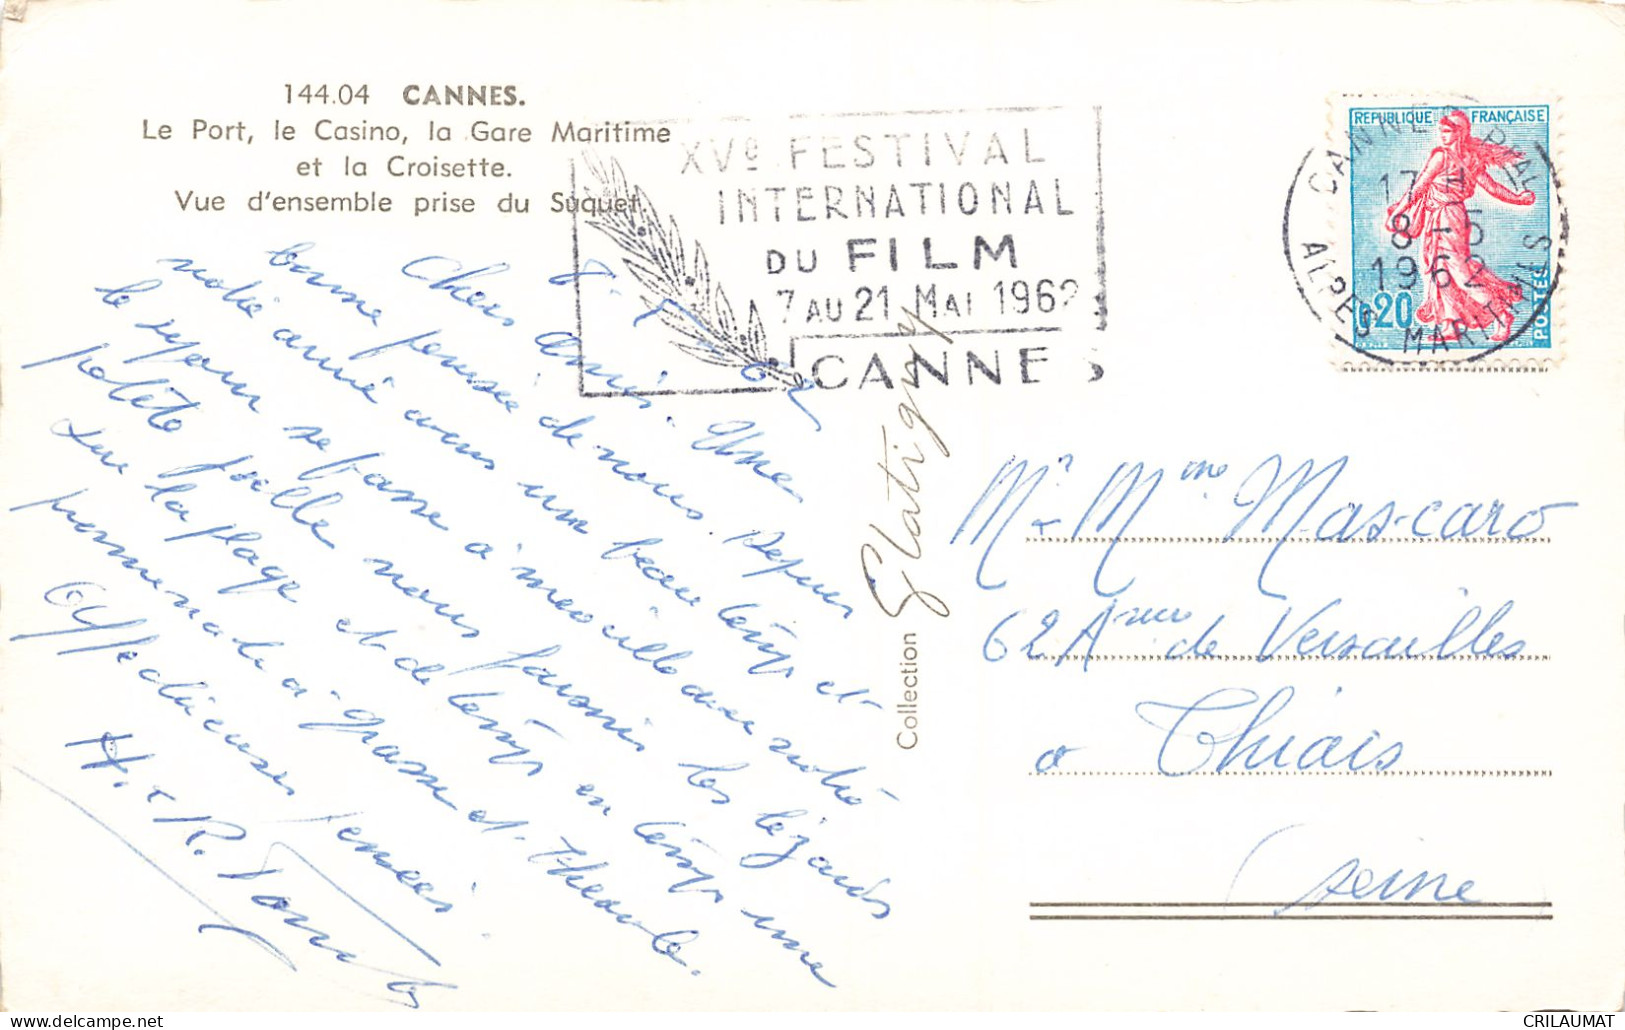 144.04 CANNES.
Le Port, le Casino, la Gare Maritime
et la Croisette.
Vue d'ensemble prise du Suquet
XVe FESTIVAL
INTERNATIONAL
DU FILM
7 AU 21 MAI 1962
CANNES
REPUBLIQUE FRANÇAISE
0,20
POSTES
CANNES PPAL
17 H
8 - 5
1962
ALPES MARITIMES
Chers Amis. Une
bonne pensée de nous. Depuis
notre arrivée avons un beau temps et
le séjour se passe à merveille avec notre
petite fille nous faisons les lézards
sur la plage et de temps en temps une
promenade à Grasse et Théoule.
Affectueuses pensées.
H. & R.
Collection Glatigny
Mr & Mme Mascaro
62 Avenue de Versailles
à Thiais
Seine
delcampe.net
CRILAUMAT